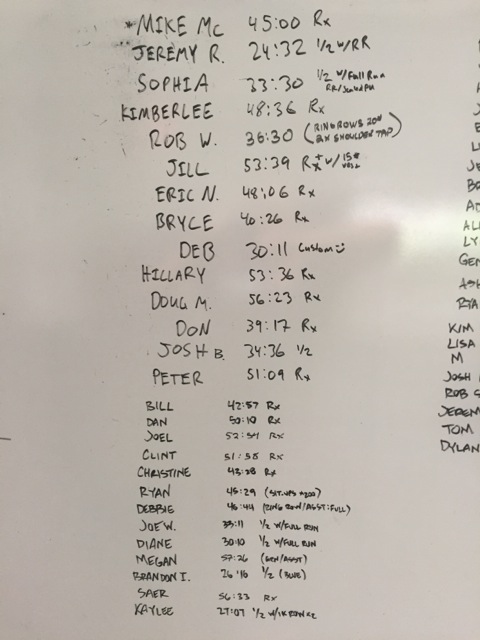 *MIKE Mc 45:00 Rx
JEREMY R. 24:32 1/2 W/RR
SOPHIA 33:30 1/2 W/Full Run
KIMBERLEE 48:36 Rx
ROB W. 36:30 (RING ROWS 20# SHOULDER TAP)
JILL 53:39 Rx+ W/15# VEST
ERIC N. 48:06 Rx
BRYCE 40:26 Rx
DEB 30:11 CUSTOM
HILLARY 53:36 Rx
DOUG M. 56:23 Rx
DON 39:17 Rx
JOSH B. 34:36 1/2
PETER 51:09 Rx
BILL 42:57 Rx
DAN 50:10 Rx
JOEL 52:54 Rx
CLINT 51:58 Rx
CHRISTINE 43:38 Rx
RYAN 45:29 (SIT-UPS #200)
DEBBIE 46:44 (RING ROW/ASST:FULL)
JOE W. 33:11 1/2 W/FULL RUN
DIANE 30:10 1/2 W/FULL RUN
MEGAN 57:26
BRANDON I. 26:16 1/2
SAER 56:33 Rx
KAYLEE 27:07 1/2 W/1K ROW
LY
GEN
ASH
RYA
KIM
LISA
M
JOSH
ROB S
JEREM
TOM
DYLAN